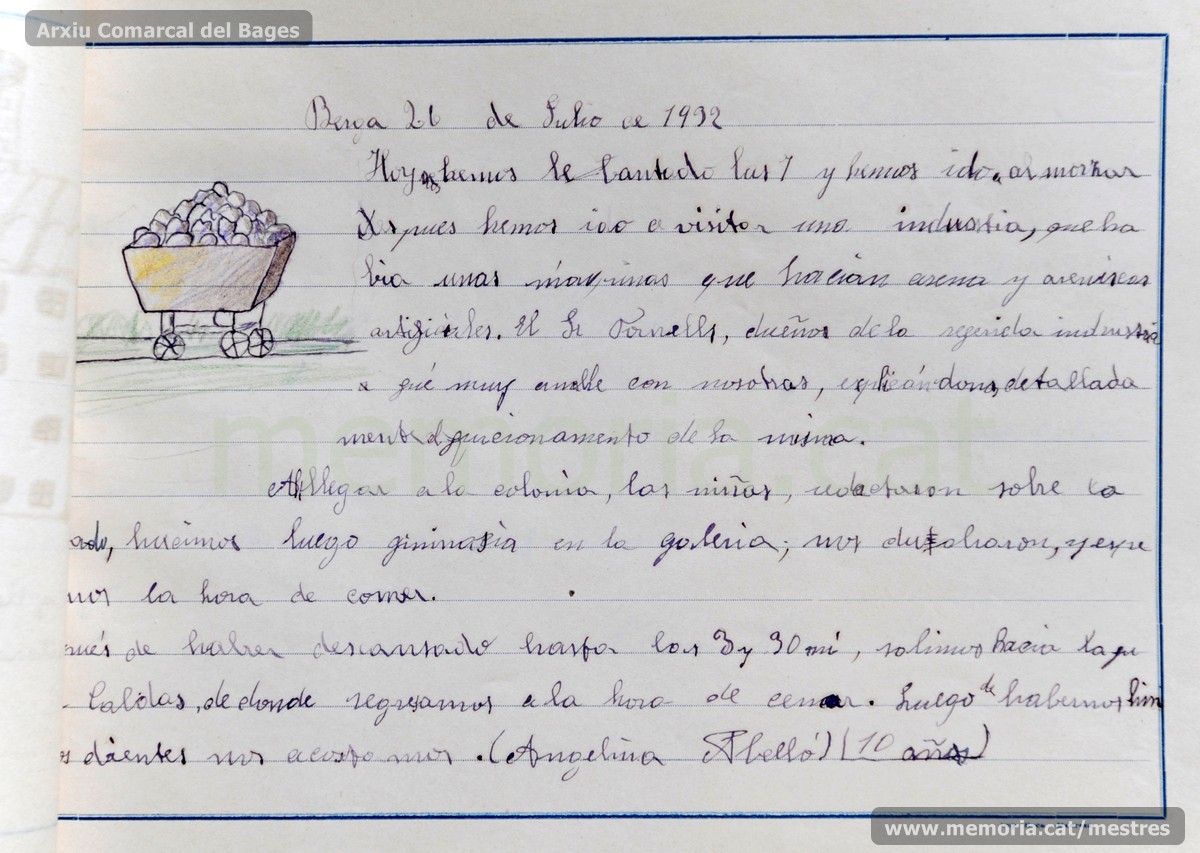 Arxiu Comarcal del Bages
Berga 26 de Julio de 1932
Hoy hemos le bantado las 7 y hemos ido, al morzar
Despues hemos ido a visitar una industria, que ha
bia unas máquinas que hacian arena y areniscas
artificiales. El Sr Fornells, dueños de la segerida industria
qué muy amable con nosotras, explicándonos, detallada
mente el funcionamento de la misma.
Al llegar a la colonia, las niñas, redactaron sobre la
ado, hicimos luego gimnasia en la galeria; nos ducharon, y espe
mos la hora de comer.
pués de haber descansado hasta las 3 y 30 mi, salimos hacia
Caldas, de donde regresamos a la hora de cenar. Luego de habernos lim
os dientes nos acostamos. (Angelina Abelló) (10 años)
memoria.cat
www.memoria.cat/mestres